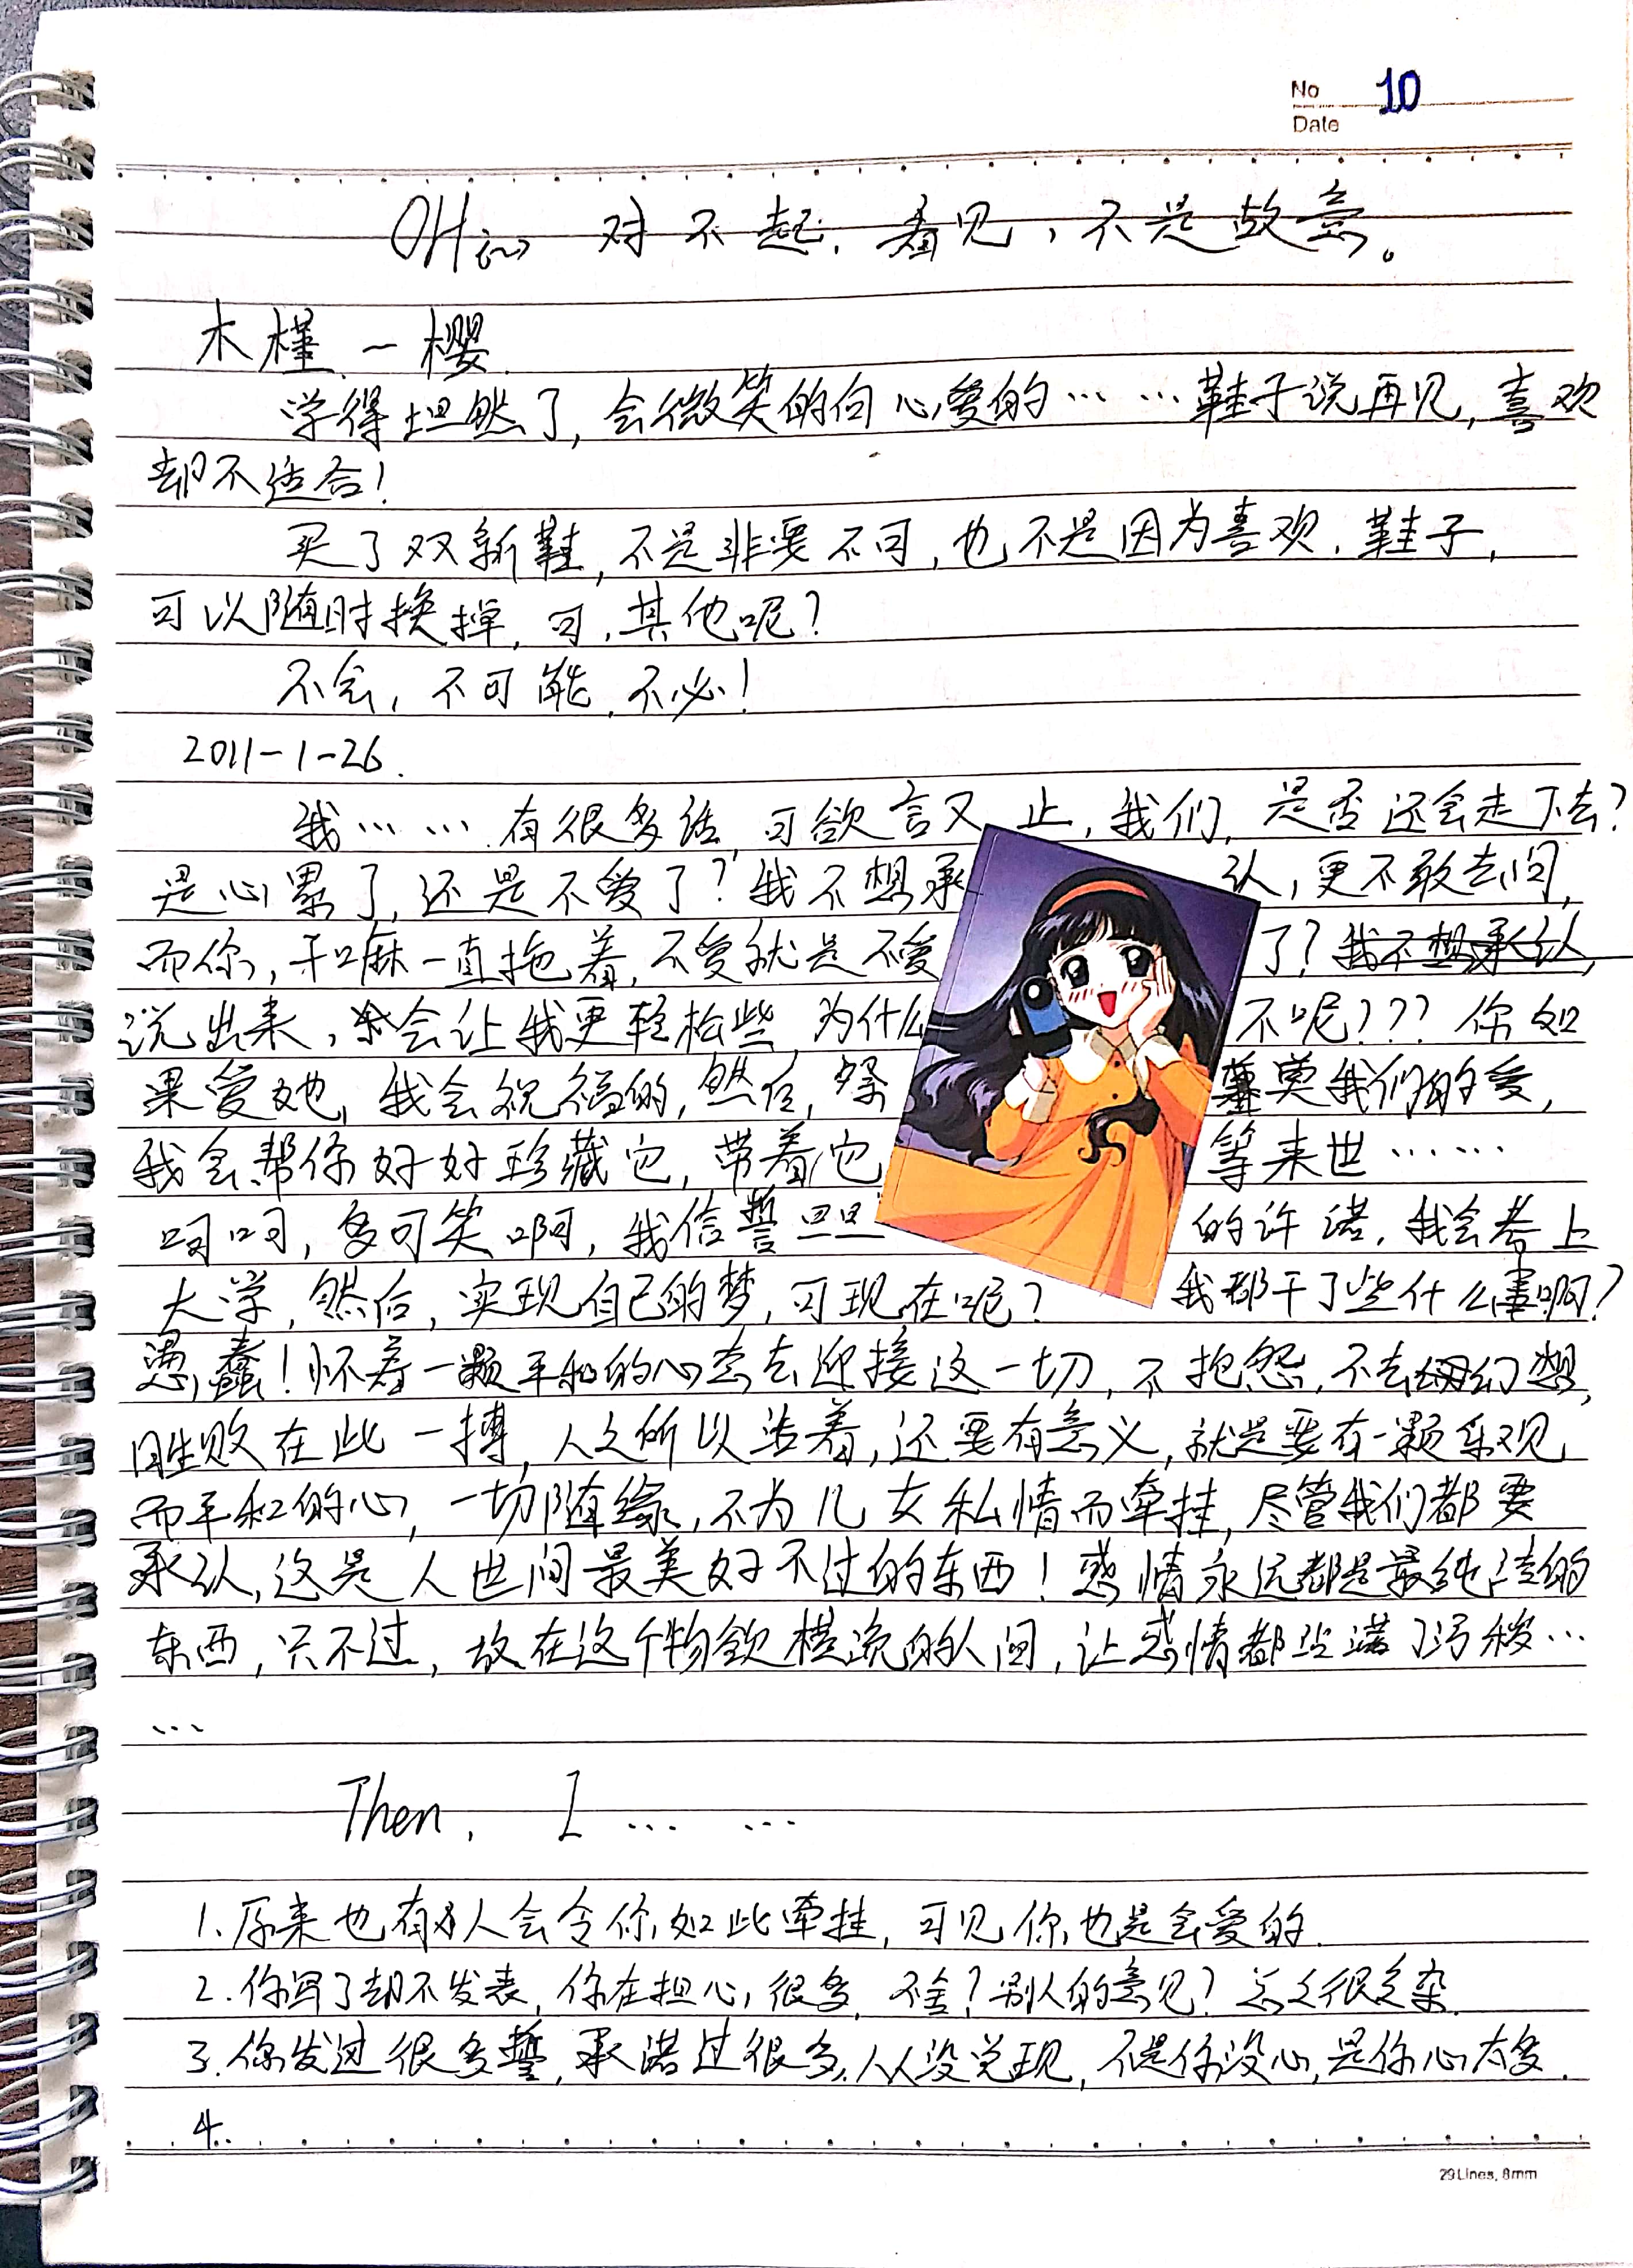 No 10
Date
OH 对不起，看见，不是故意。
木槿一樱
学得坦然了，会微笑的向心爱的……鞋子说再见，喜欢
却不适合！
买了双新鞋，不是非要不可，也不是因为喜欢．鞋子，
可以随时换掉，可，其他呢？
不会，不可能，不必！
2011-1-26.
我……有很多话，可欲言又止，我们，是否还会走下去？
是心累了，还是不爱了？我不想承认，更不敢去问，
而你，干嘛一直拖着，不爱就是不爱了？我不想承认，
说出来，会让我更轻松些，为什么不呢？？？你如
果爱她，我会祝福的，然后，祭奠我们的爱，
我会帮你好好珍藏它，带着它等来世……
呵呵，多可笑啊，我信誓旦旦的许诺，我会考上
大学，然后，实现自己的梦，可现在呢？我都干了些什么啊？
愚蠢！怀着一颗平和的心态去迎接这一切，不抱怨，不去幻想，
胜败在此一搏，人之所以活着，还要有意义，就是要有一颗乐观
而平和的心，一切随缘，不为儿女私情而牵挂，尽管我们都要
承认，这是人世间最美好不过的东西！感情永远都是最纯洁的
东西，只不过，放在这个物欲横流的人间，让感情都沾满了污秽…
…
Then, I … …
1.原来也有人会令你如此牵挂，可见你也是会爱的．
2.你写了却不发表，你在担心，很多，不舍？别人的意见？怎么很复杂．
3.你发过很多誓，承诺过很多，从没兑现，不是你没心，是你心太多．
4.
29Lines, 8mm